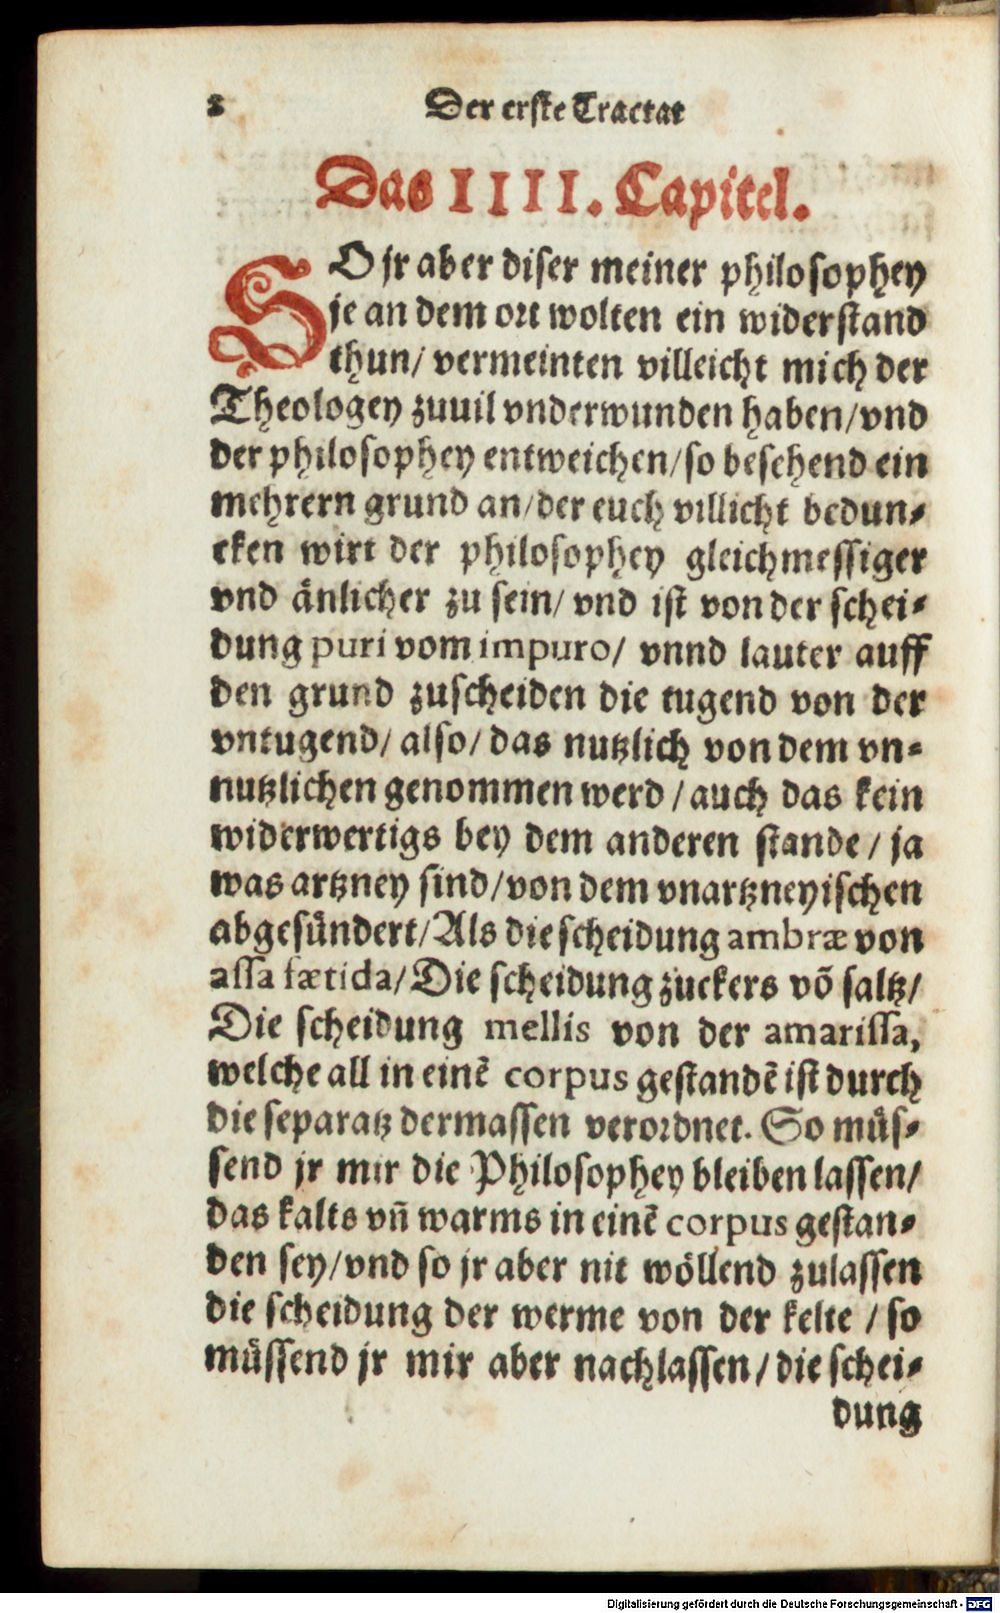 8 Der erste Tractat
Das IIII. Capitel.
SO jr aber diser meiner philosophey
je an dem ort wolten ein widerstand
thun/ vermeinten villeicht mich der
Theologey zuuil vnderwunden haben/vnd
der philosophey entweichen/so besehend ein
mehrern grund an/der euch villicht bedun⸗
cken wirt der philosophey gleichmessiger
vnd änlicher zu sein/ vnd ist von der schei⸗
dung puri vom impuro/ vnnd lauter auff
den grund zuscheiden die tugend von der
vntugend/ also/ das nutzlich von dem vn⸗
nutzlichen genommen werd / auch das kein
widerwertigs bey dem anderen stande / ja
was artzney sind/von dem vnartzneyischen
abgesündert/Als die scheidung ambræ von
assa fætida/Die scheidung zuckers võ saltz/
Die scheidung mellis von der amarissa,
welche all in einẽ corpus gestandẽ ist durch
die separatz dermassen verordnet. So müs⸗
send jr mir die Philosophey bleiben lassen/
das kalts vñ warms in einẽ corpus gestan⸗
den sey/vnd so jr aber nit wöllend zulassen
die scheidung der werme von der kelte / so
müssend jr mir aber nachlassen/ die schei⸗
dung
Digitalisierung gefördert durch die Deutsche Forschungsgemeinschaft - DFG